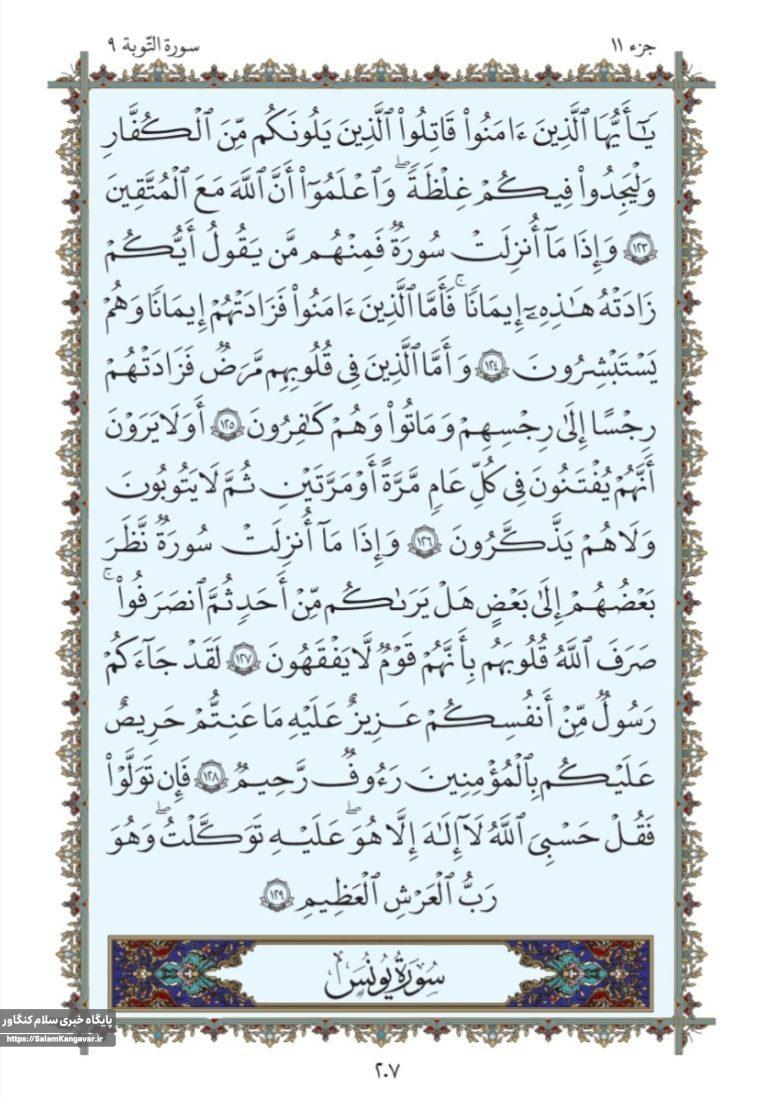 جزء ١١
سورة التّوبة ٩
يَـٰٓأَيُّهَا ٱلَّذِينَ ءَامَنُواْ قَـٰتِلُواْ ٱلَّذِينَ يَلُونَكُم مِّنَ ٱلۡكُفَّارِ
وَلۡيَجِدُواْ فِيكُمۡ غِلۡظَةٗۚ وَٱعۡلَمُوٓاْ أَنَّ ٱللَّهَ مَعَ ٱلۡمُتَّقِينَ
١٢٣ وَإِذَا مَآ أُنزِلَتۡ سُورَةٞ فَمِنۡهُم مَّن يَقُولُ أَيُّكُمۡ
زَادَتۡهُ هَـٰذِهِۦٓ إِيمَـٰنٗاۚ فَأَمَّا ٱلَّذِينَ ءَامَنُواْ فَزَادَتۡهُمۡ إِيمَـٰنٗا وَهُمۡ
يَسۡتَبۡشِرُونَ ١٢٤ وَأَمَّا ٱلَّذِينَ فِي قُلُوبِهِم مَّرَضٞ فَزَادَتۡهُمۡ
رِجۡسًا إِلَىٰ رِجۡسِهِمۡ وَمَاتُواْ وَهُمۡ كَـٰفِرُونَ ١٢٥ أَوَلَا يَرَوۡنَ
أَنَّهُمۡ يُفۡتَنُونَ فِي كُلِّ عَامٖ مَّرَّةً أَوۡ مَرَّتَيۡنِ ثُمَّ لَا يَتُوبُونَ
وَلَا هُمۡ يَذَّكَّرُونَ ١٢٦ وَإِذَا مَآ أُنزِلَتۡ سُورَةٞ نَّظَرَ
بَعۡضُهُمۡ إِلَىٰ بَعۡضٍ هَلۡ يَرَىٰكُم مِّنۡ أَحَدٖ ثُمَّ ٱنصَرَفُواْۚ
صَرَفَ ٱللَّهُ قُلُوبَهُم بِأَنَّهُمۡ قَوۡمٞ لَّا يَفۡقَهُونَ ١٢٧ لَقَدۡ جَآءَكُمۡ
رَسُولٞ مِّنۡ أَنفُسِكُمۡ عَزِيزٌ عَلَيۡهِ مَا عَنِتُّمۡ حَرِيصٌ
عَلَيۡكُم بِٱلۡمُؤۡمِنِينَ رَءُوفٞ رَّحِيمٞ ١٢٨ فَإِن تَوَلَّوۡاْ
فَقُلۡ حَسۡبِيَ ٱللَّهُ لَآ إِلَـٰهَ إِلَّا هُوَۖ عَلَيۡهِ تَوَكَّلۡتُۖ وَهُوَ
رَبُّ ٱلۡعَرۡشِ ٱلۡعَظِيمِ ١٢٩
سُورَةُ يُونُسَ
پایگاه خبری سلام کنگاور
https://SalamKangavar.ir
٢٠٧